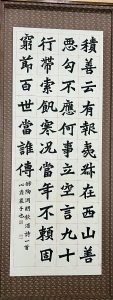 積善云有報夷叔在西山善
惡苟不應何事立空言九十
行帶索飢寒況當年不賴固
窮節百世當誰傳
陶淵明飲酒詩一首